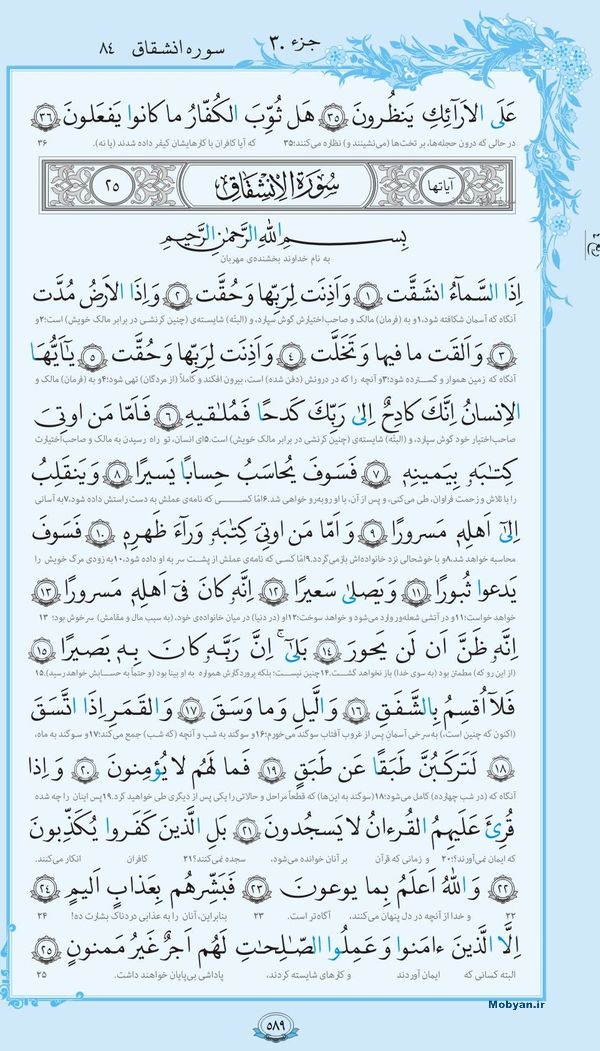 جزء ۳۰ سوره انشقاق ۸۴
عَلَى الاَرَآئِكِ يَنظُرونَ ۳۵ هَل ثُوِّبَ الكُفّارُ ما كانوا يَفعَلونَ ۳۶
در حالی که درون حجله‌ها، بر تخت‌ها (می‌نشینند و) نظاره می‌کنند؛۳۵ که آیا کافران با کارهایشان کیفر داده شدند (یا نه). ۳۶
آیاتها سُورَةُ الاِنشِقاق ۲۵
بِسمِ اللهِ الرَّحمٰنِ الرَّحيمِ
به نام خداوند بخشنده‌ی مهربان
اِذَا السَّمآءُ انشَقَّت ۱ وَ اَذِنَت لِرَبِّها وَ حُقَّت ۲ وَ اِذَا الاَرضُ مُدَّت
آنگاه که آسمان شکافته شود،۱و به (فرمان) مالک و صاحب‌اختیارش گوش سپارد، و (البتّه) شایسته‌ی (چنین کرنشی در برابر مالک خویش) است؛۲و
۳ وَ اَلقَت ما فيها وَ تَخَلَّت ۴ وَ اَذِنَت لِرَبِّها وَ حُقَّت ۵ يٰۤاَيُّهَا
آنگاه که زمین هموار و گسترده شود؛۳و آنچه را که در درونش (دفن شده) است، بیرون افکند و کاملاً (از مردگان) تهی شود؛۴و به (فرمان) مالک و
الاِنسانُ اِنَّكَ كادِحٌ اِلىٰ رَبِّكَ كَدحًا فَمُلٰقيهِ ۶ فَاَمّا مَن اوتِىَ
صاحب‌اختیار خود گوش سپارد، و (البتّه) شایسته‌ی (چنین کرنشی در برابر مالک خویش) است.۵ای انسان، تو راه رسیدن به مالک و صاحب‌اختیارت
كِتٰبَه‌و بِيَمينِه ۷ فَسَوفَ يُحاسَبُ حِسابًا يَسيرًا ۸ وَ يَنقَلِبُ
را با تلاش و زحمت فراوان، طی می‌کنی، و پس از آن، با او روبه‌رو خواهی شد.۶امّا کسـی که نامه‌ی عملش به دست راستش داده شود،۷به آسانی
اِلىٰۤ اَهلِه مَسرورًا ۹ وَ اَمّا مَن اوتِىَ كِتٰبَه‌و وَرآءَ ظَهرِه ۱۰ فَسَوفَ
محاسبه خواهد شد.۸و با خوشحالی نزد خانواده‌اش بازمی‌گردد.۹امّا کسی که نامه‌ی عملش از پشت سر به او داده شود،۱۰به زودی مرگ خویش را
يَدعوا ثُبورًا ۱۱ وَ يَصلىٰ سَعيرًا ۱۲ اِنَّه‌و كانَ فىۤ اَهلِه مَسرورًا ۱۳
خواهد خواست؛۱۱و در آتشی شعله‌ور وارد می‌شود و خواهد سوخت؛۱۲او (در دنیا) در میان خانواده‌ی خود، (به سبب مال و مقامش) سرخوش بود؛ ۱۳
اِنَّه‌و ظَنَّ اَن لَن يَحورَ ۱۴ بَلىٰۤ اِنَّ رَبَّه‌و كانَ بِه بَصيرًا ۱۵
(از این رو که) مطمئن بود (به سوی خدا) باز نخواهد گشت.۱۴چنین نیست؛ بلکه پروردگارش همواره به او بینا بود (و حتماً به حسابش خواهد رسید).۱۵
فَلاۤ اُقسِمُ بِالشَّفَقِ ۱۶ وَ الَّيلِ وَ ما وَسَقَ ۱۷ وَ القَمَرِ اِذَا اتَّسَقَ
(اکنون که چنین است،) به سرخی آسمانِ پس از غروب آفتاب سوگند می‌خورم؛۱۶و سوگند به شب و آنچه (که شب) جمع می‌کند؛۱۷و سوگند به ماه،
۱۸ لَتَركَبُنَّ طَبَقًا عَن طَبَقٍ ۱۹ فَما لَهُم لا يُؤمِنونَ ۲۰ وَ اِذا
آنگاه که (در شب چهارده) کامل می‌شود؛۱۸(سوگند به این‌ها) که قطعاً مراحل و حالاتی را یکی پس از دیگری طی خواهید کرد.۱۹پس اینان را چه شده
قُرِئَ عَلَيهِمُ القُرءانُ لا يَسجُدونَ ۲۱ بَلِ الَّذينَ كَفَروا يُكَذِّبونَ
که ایمان نمی‌آورند؟!۲۰ و زمانی که قرآن بر آنان خوانده می‌شود، سجده نمی‌کنند؟!۲۱ کافران انکار می‌کنند.
۲۲ وَ اللهُ اَعلَمُ بِما يوعونَ ۲۳ فَبَشِّرهُم بِعَذابٍ اَليمٍ ۲۴
۲۲ و خدا از آنچه در دل پنهان می‌کنند، آگاه‌تر است. ۲۳ بنابراین، آنان را به عذابی دردناک بشارت ده! ۲۴
اِلَّا الَّذينَ ءامَنوا وَ عَمِلُوا الصّٰلِحٰتِ لَهُم اَجرٌ غَيرُ مَمنونٍ ۲۵
البته کسانی که ایمان آوردند و کارهای شایسته کردند، پاداشی بی‌پایان خواهند داشت. ۲۵
Mobyan.ir
۵۸۹